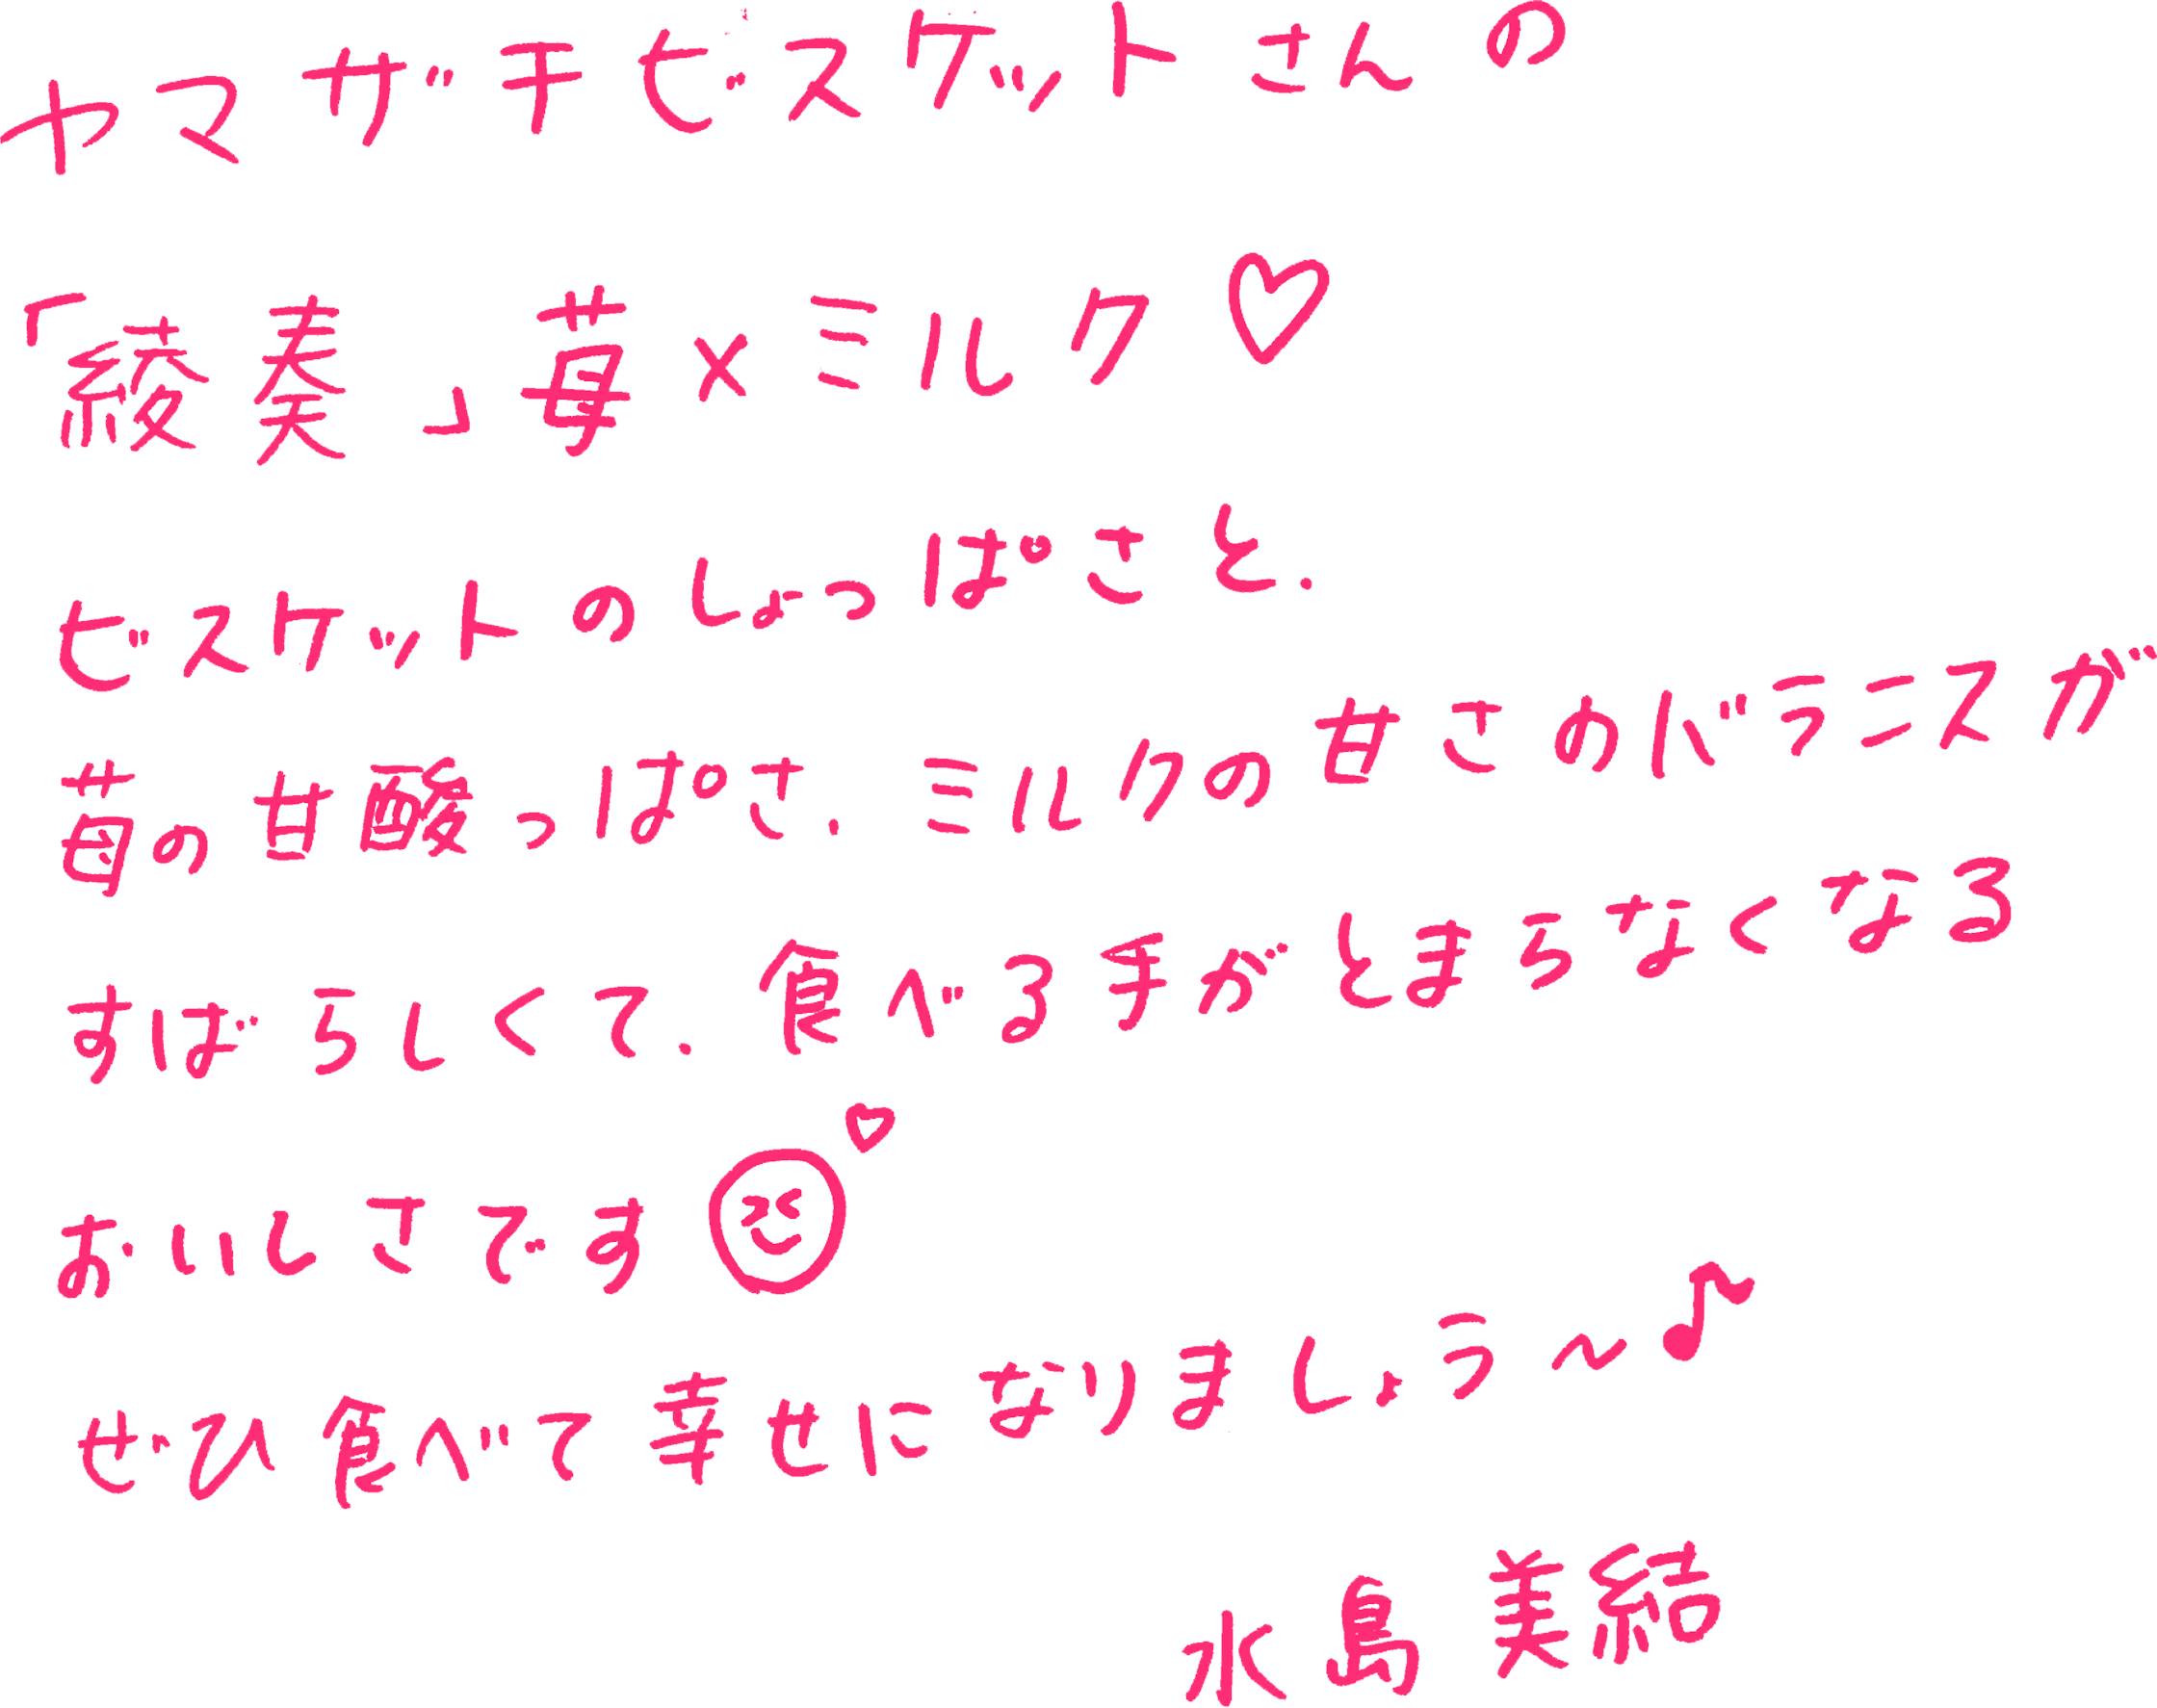 ヤマザキビスケットさんの
「綾奏」苺×ミルク♡
ビスケットのしょっぱさと、
苺の甘酸っぱさ、ミルクの甘さのバランスが
すばらしくて、食べる手がとまらなくなる
おいしさです♡
ぜひ食べて幸せになりましょう～♪
水島美結